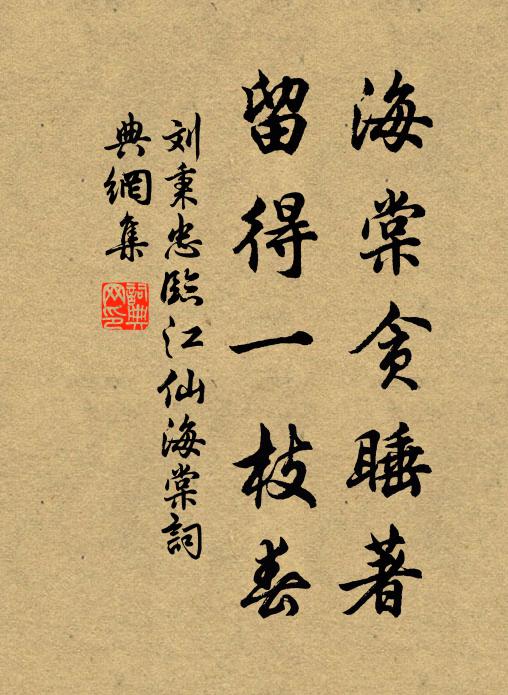 海棠貪睡著
留得一枝春
刘秉忠臨江仙海棠詞
典網集
詞典
网印